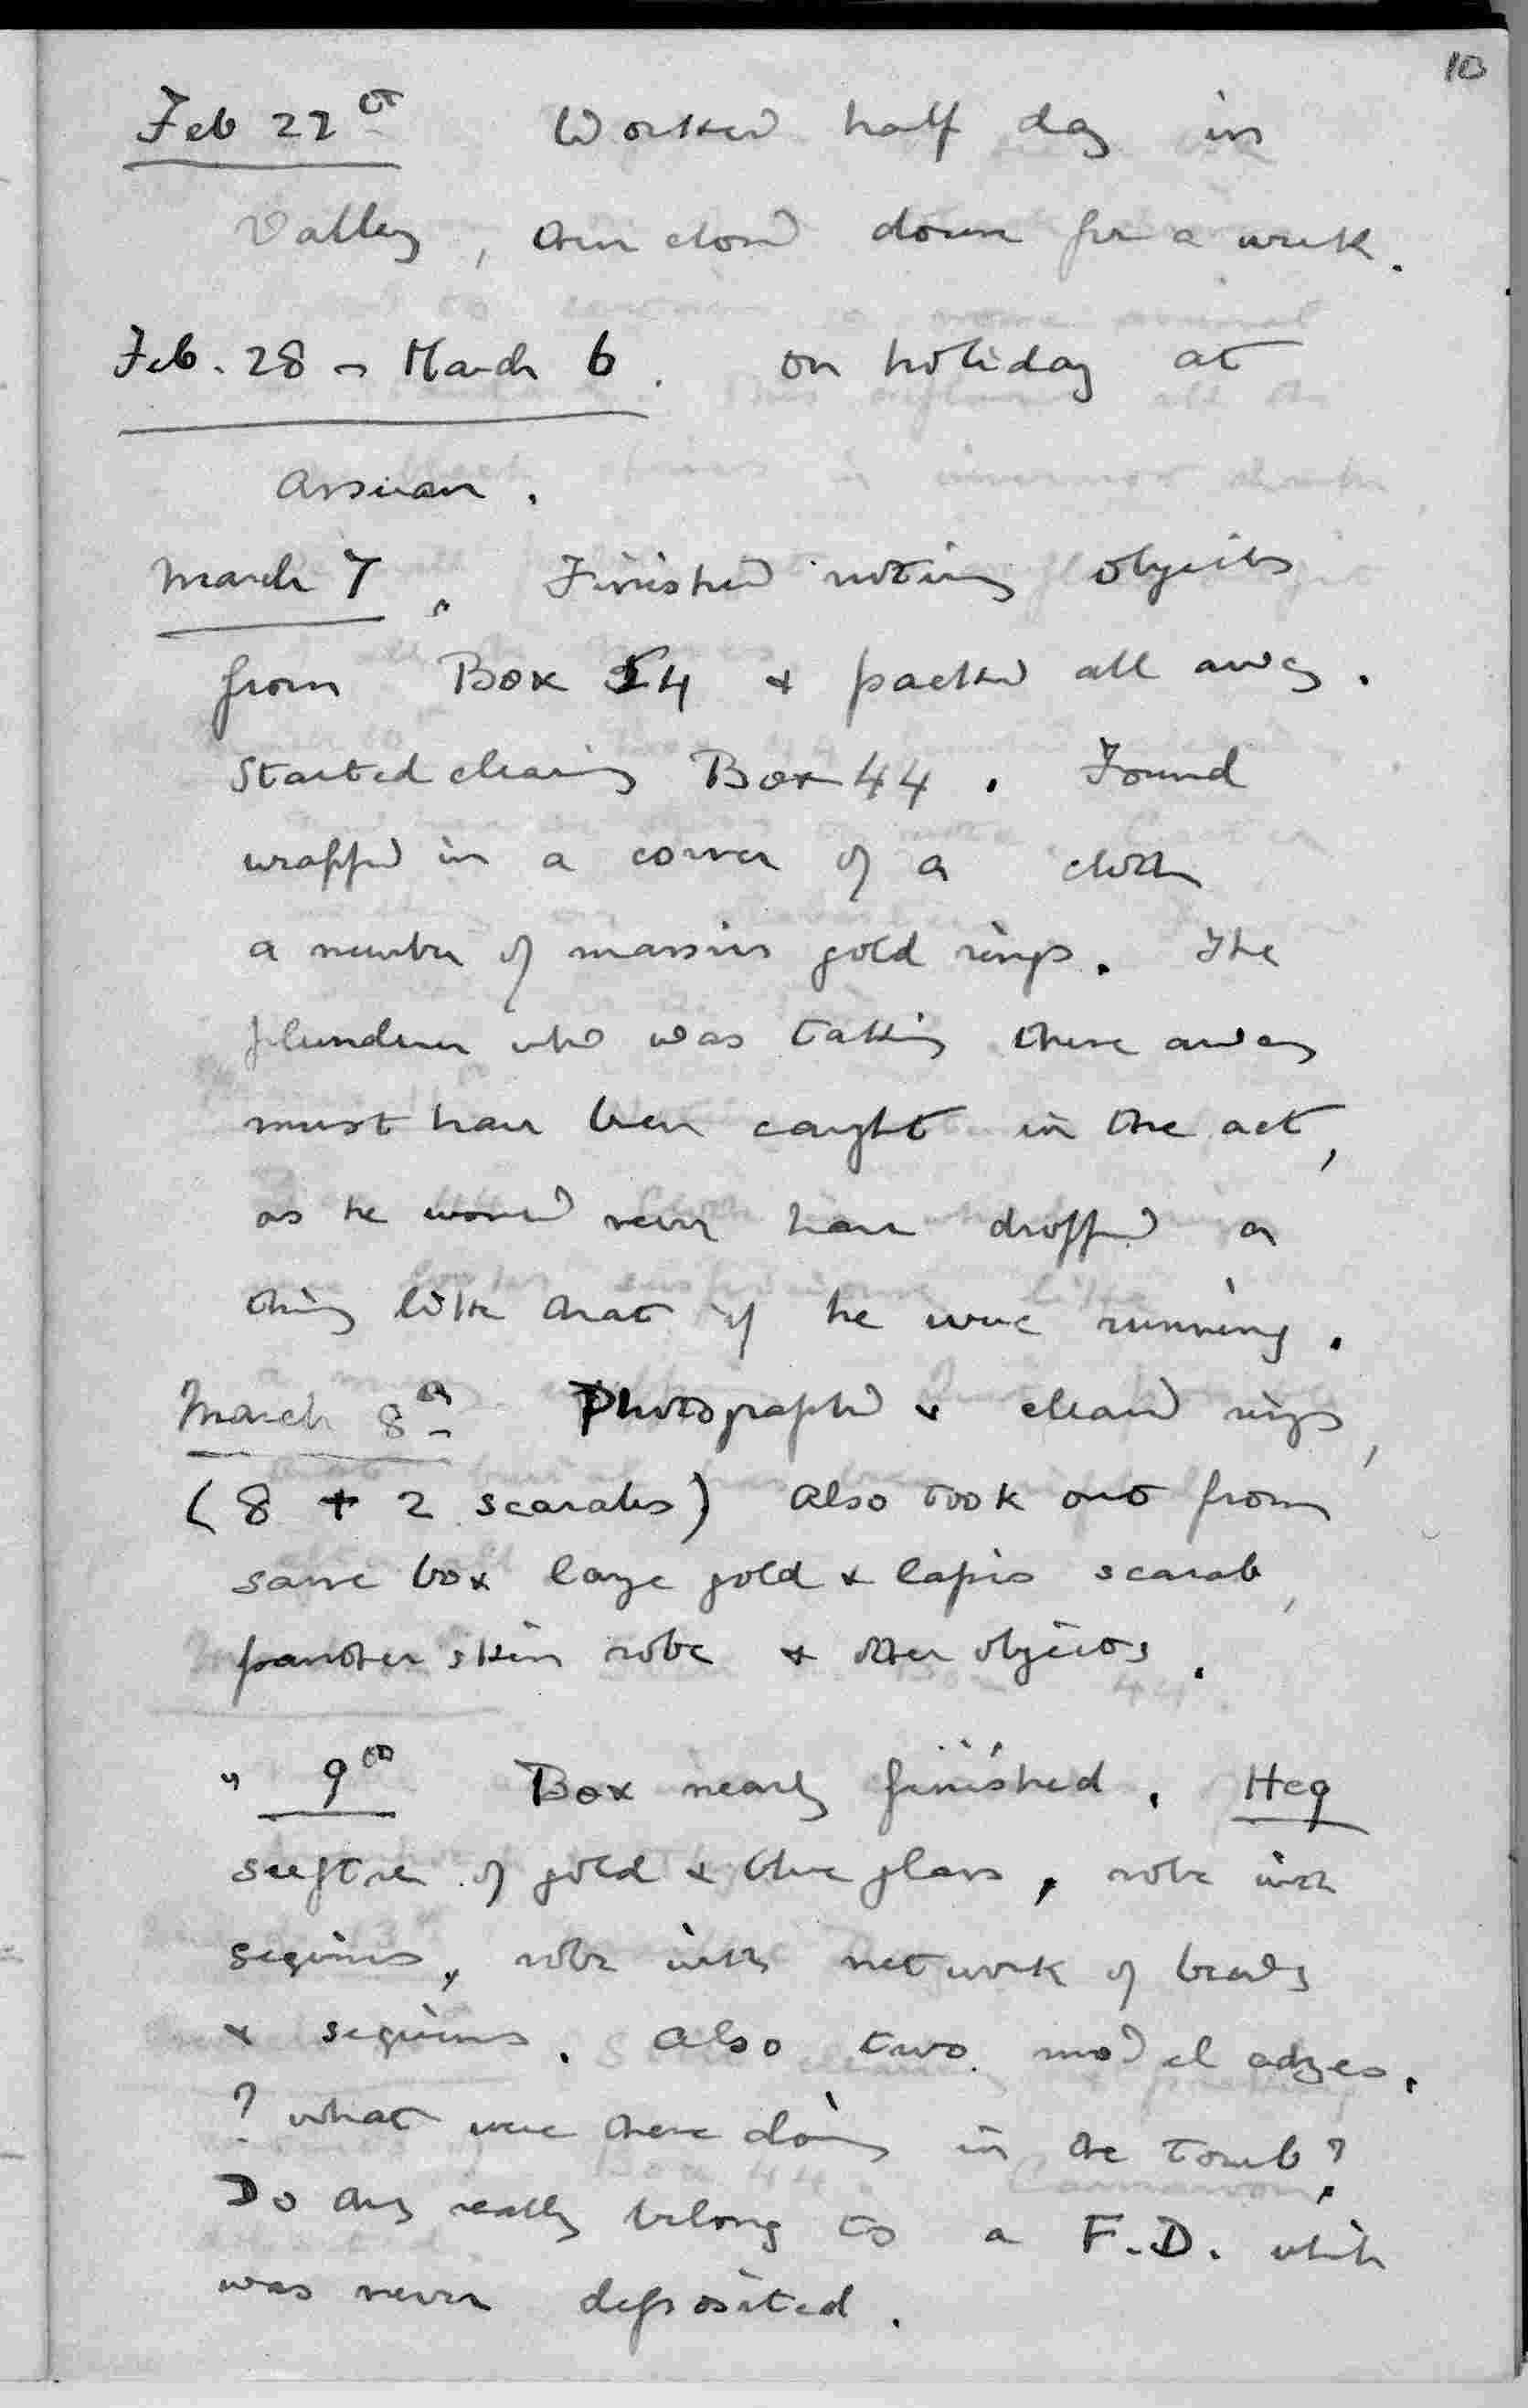 10
Feb 27th Worked half day in
Valley, then closed down for a week.
Feb. 28 - March 6. On holiday at
Assuan.
March 7. Finished noting objects
from Box 54 & packed all away.
Started clearing Box 44. Found
wrapped in a corner of a cloth
a number of massive gold rings. The
plunderer who was taking these away
must have been caught in the act,
as he would never have dropped a
thing like that if he were running.
March 8th Photographed & cleaned rings,
(8 + 2 scarabs) Also took out from
same box large gold & lapis scarab,
panther skin robe & other objects.
" 9th Box nearly finished. Heq
sceptre of gold & blue glass, robe with
sequins, robe with network of beads
& sequins. Also two model adzes.
? What were these doing in the tomb?
Do they really belong to a F.D. which
was never deposited.